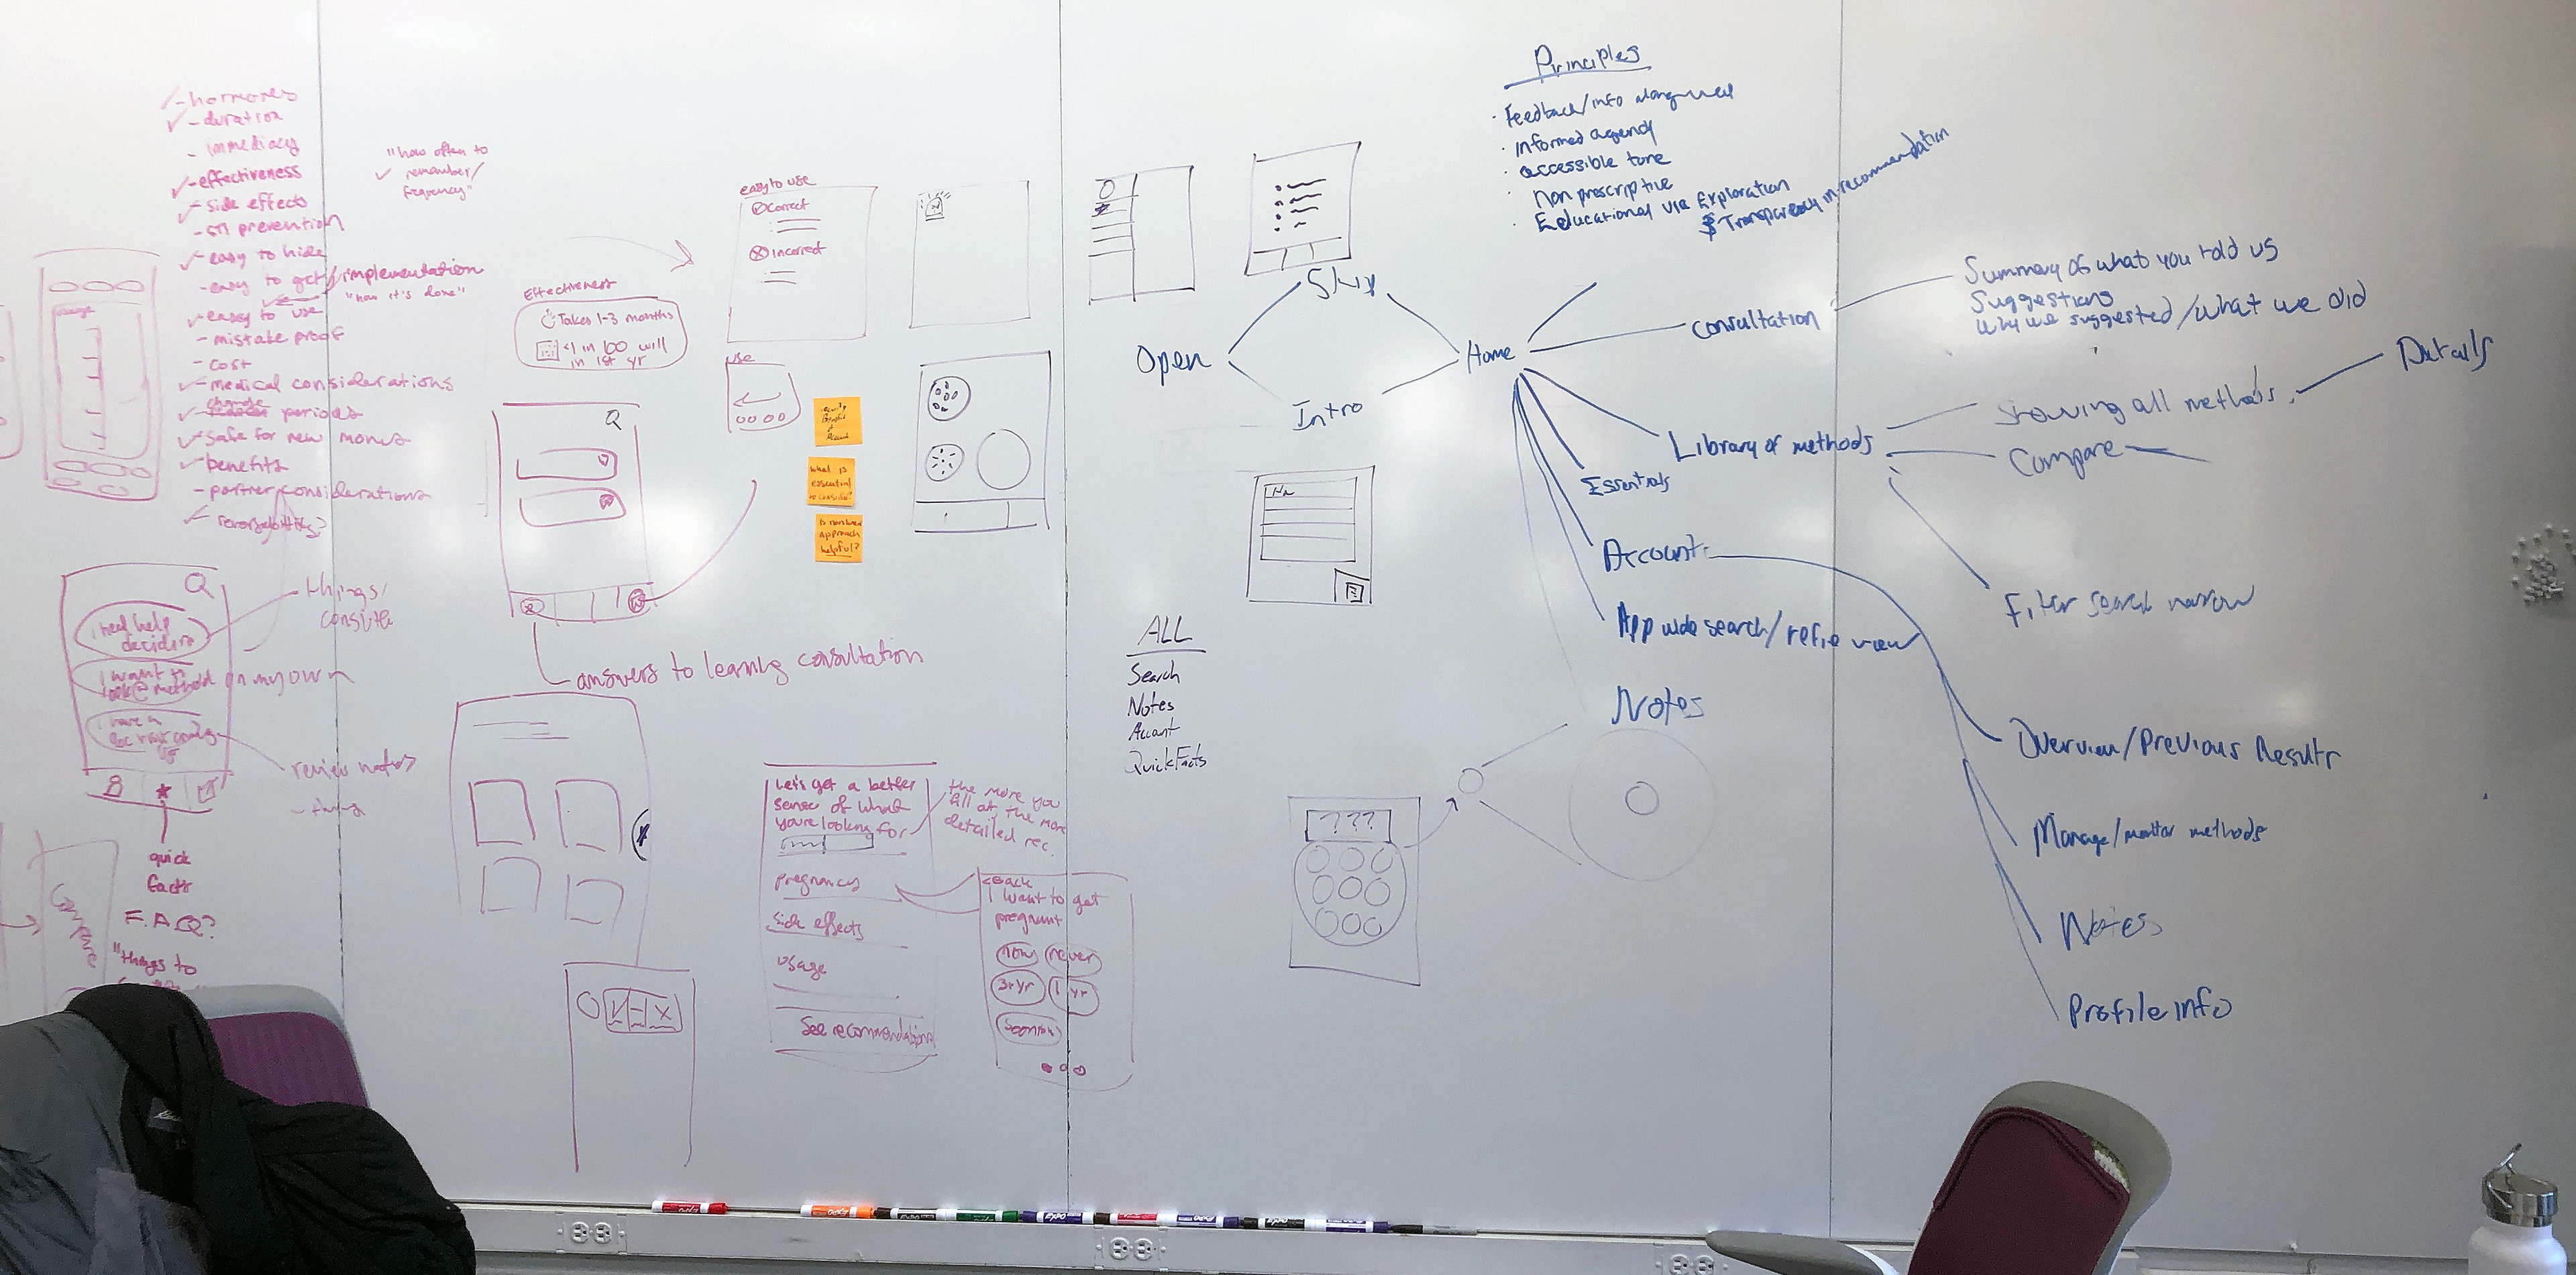 - hormones
- duration
- immediacy
- effectiveness
- side effects
- STI prevention
- easy to hide
- easy to get/implementation
"how it's done"
- easy to use
- mistake proof
- cost
- medical considerations
change
periods
- safe for new moms
- benefits
- partner considerations
"how often to
remember/
frequency"
I need help
deciding
I want to
look @ method on my own
I have a
things/
review notes
quick
facts
F.A.Q?
"things to
Compare
Effectiveness
Takes 1-3 months
<1 in 100 will
in 1st yr
answers to learning consultation
easy to use
Correct
Incorrect
use
what is
essential
to consider?
Is nonlinear
approach
helpful?
Let's get a better
sense of what
you're looking for
the more you
fill at the more
detailed rec.
pregnancy
side effects
usage
See recommendations
<back
I want to get
pregnant
now
never
3+yr
1 yr
ALL
Search
Notes
Account
QuickFacts
???
Principles
Feedback/info along way
informed agency
accessible tone
Non prescriptive
Educational via Exploration
Transparency in recommendation
Open
Skip
Intro
Home
Consultation
Summary of what you told us
Suggestions
Why we suggested/what we did
Library of methods
Showing all methods
Details
Compare
Filter search narrow
Essentials
Account
Overview/Previous Results
Manage/monitor methods
Notes
Profile info
App wide search/refie view
Notes